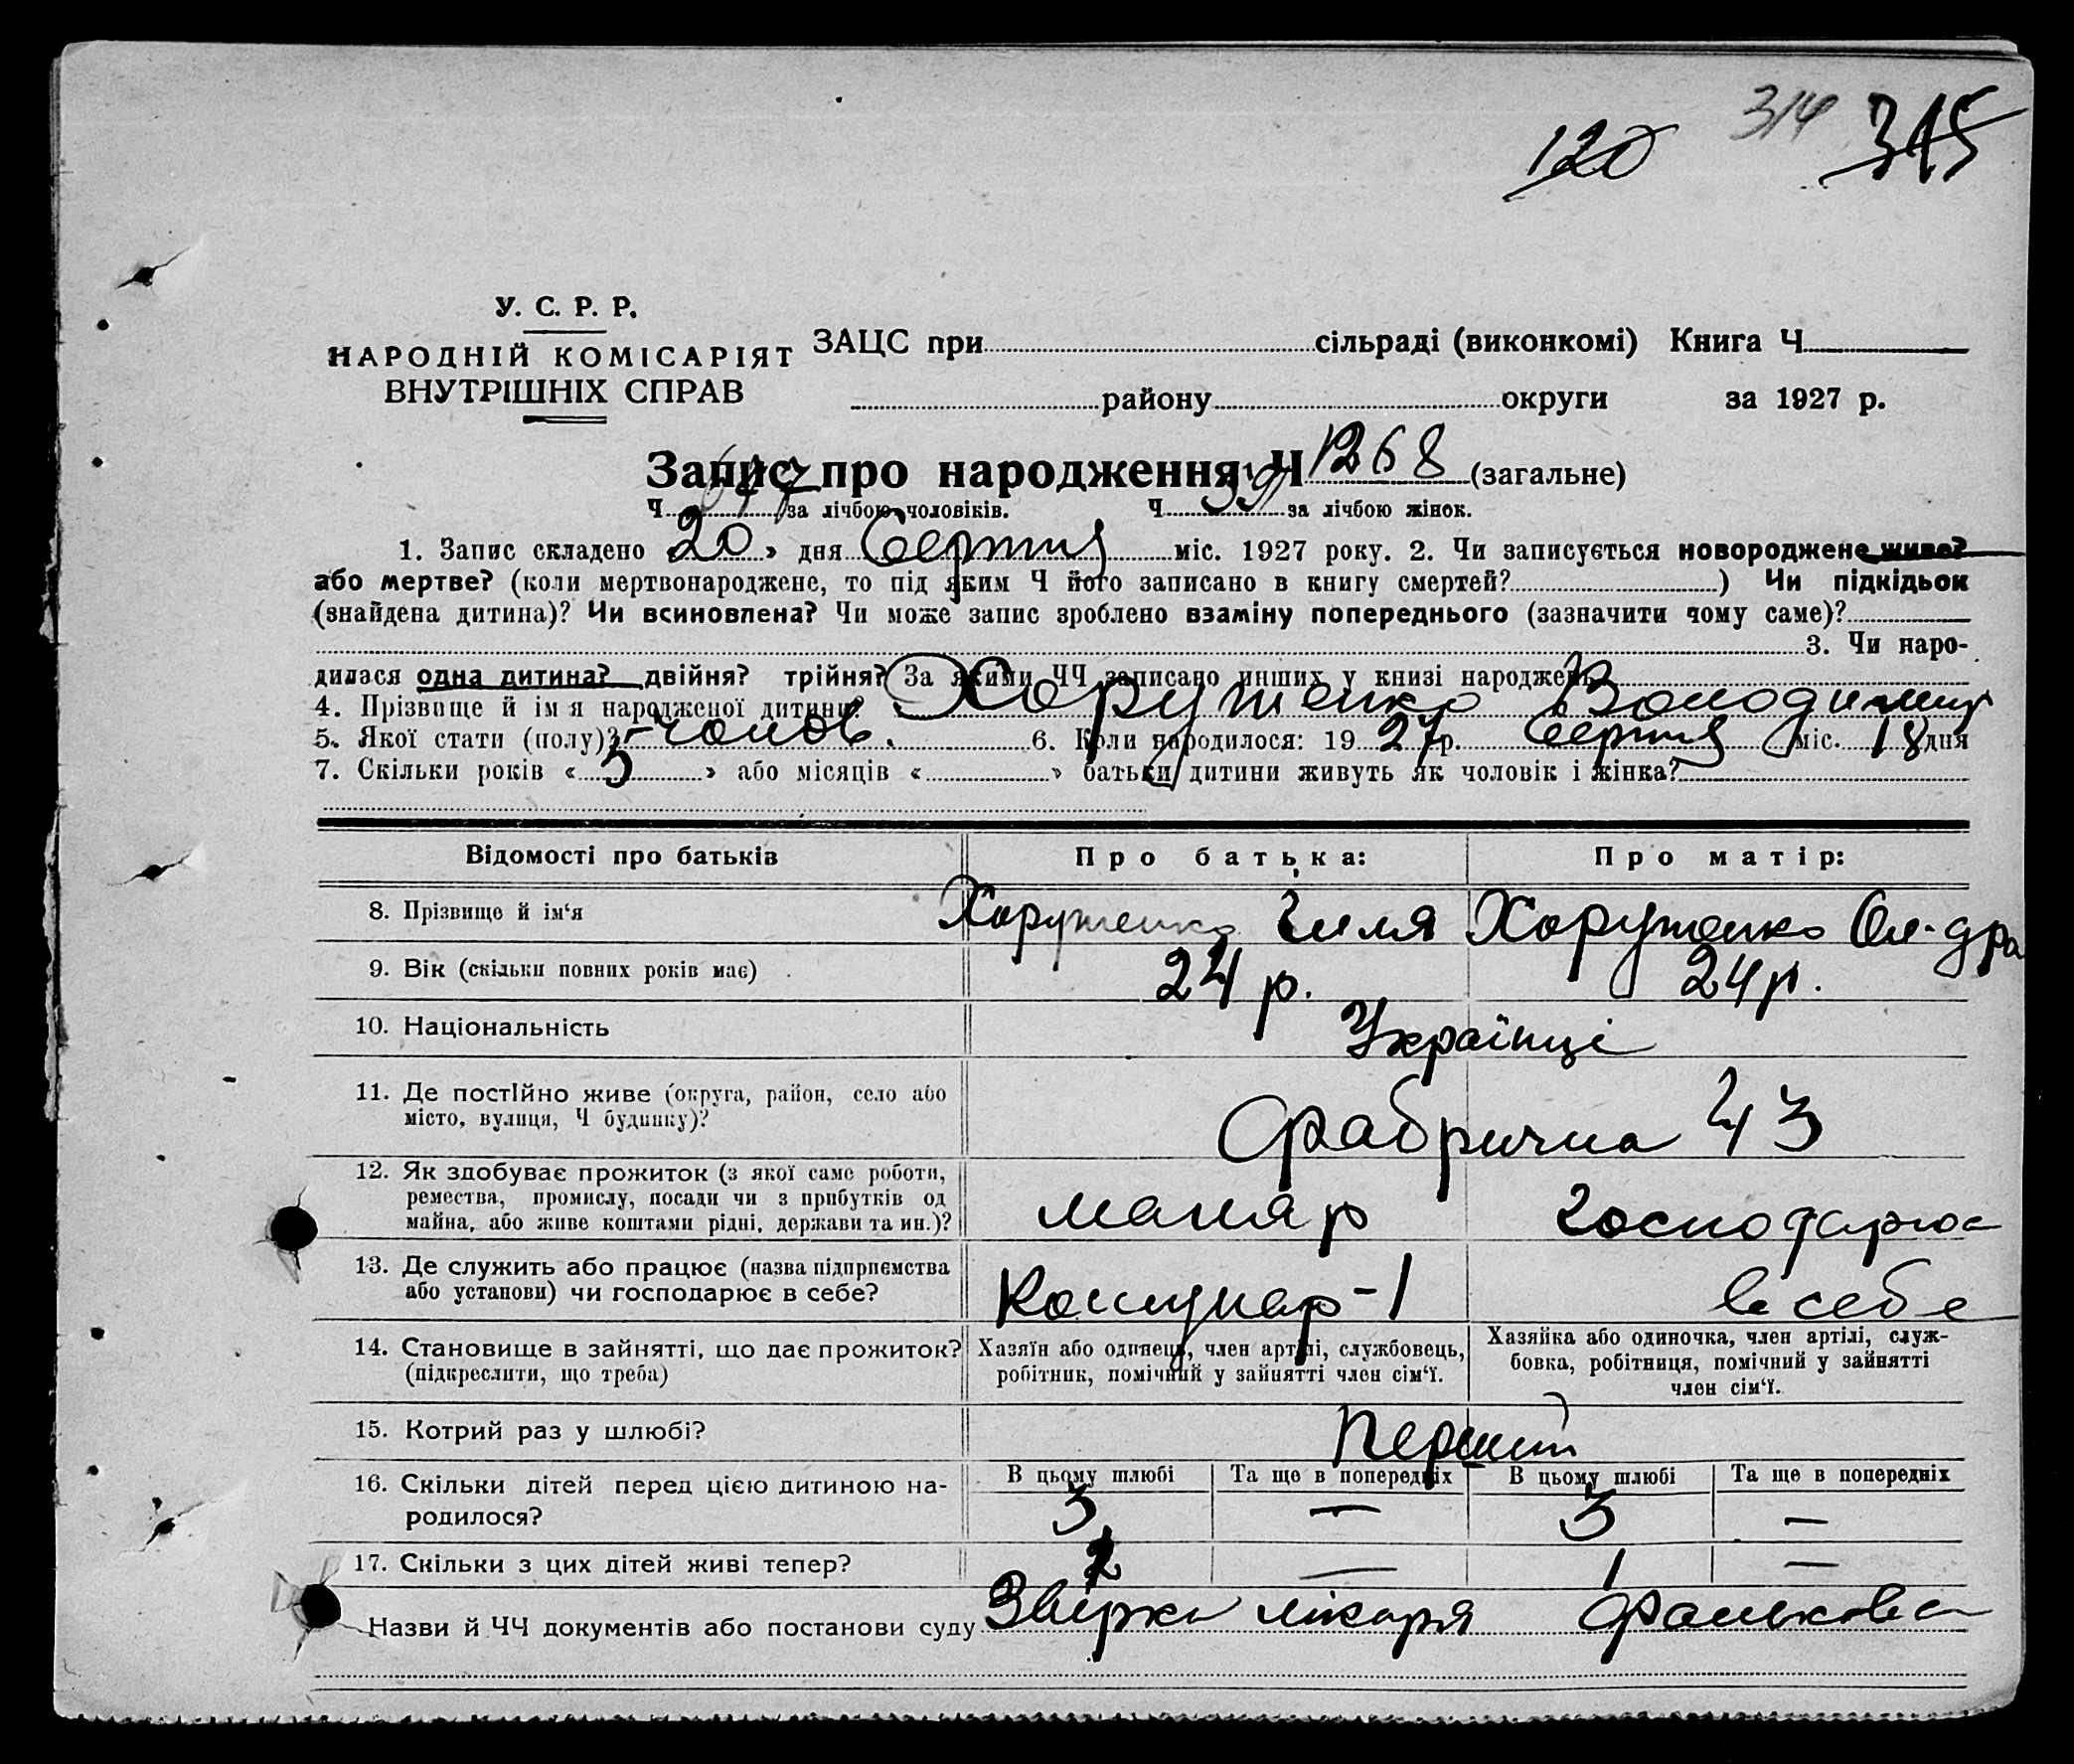 314 315
120
У. С. Р. Р.
НАРОДНІЙ КОМІСАРІЯТ
ВНУТРІШНІХ СПРАВ
ЗАЦС при сільраді (виконкомі) Книга Ч
району округи за 1927 р.
Запис про народження Ч 1268 (загальне)
Ч за лічбою чоловіків. Ч за лічбою жінок.
1. Запис складено « 20 » дня Серпня міс. 1927 року. 2. Чи записується новороджене живе?
або мертве? (коли мертвонароджене, то під яким Ч його записано в книгу смертей? ) Чи підкідьок
(знайдена дитина)? Чи всиновлена? Чи може запис зроблено взаміну попереднього (зазначити чому саме)?
3. Чи наро-
дилася одна дитина? двійня? трійня? За якими ЧЧ записано инших у книзі народжень
4. Прізвище й ім я народженої дитини? Хоруженко Володимир
5. Якої стати (полу)? чолов. 6. Коли народилося: 19 27 р. Серпня міс. 18 дня
7. Скільки років « 5 » або місяців « » батьки дитини живуть як чоловік і жінка?
Відомості про батьків Про батька: Про матір:
8. Прізвище й ім‘я Хоруженко Ілля Хоруженко Ол-дра
9. Вік (скільки повних років має) 24 р. 24 р.
10. Національність Українці
11. Де постійно живе (округа, район, село або
місто, вулиця, Ч будинку)? Фабрична 43
12. Як здобуває прожиток (з якої саме роботи,
ремества, промислу, посади чи з прибутків од
майна, або живе коштами рідні, держави та ин.)? маляр господарює
13. Де служить або працює (назва підприємства
або установи) чи господарює в себе? Комунар-1 в себе
14. Становище в зайнятті, що дає прожиток?
(підкреслити, що треба)
Хазяїн або одинець, член артілі, службовець,
робітник, помічний у зайнятті член сім‘ї.
Хазяйка або одиночка, член артілі, служ-
бовка, робітниця, помічний у зайнятті
член сім‘ї.
15. Котрий раз у шлюбі? Перший
В цьому шлюбі Та ще в попередніх В цьому шлюбі Та ще в попередніх
16. Скільки дітей перед цією дитиною на-
родилося? 3 — 3 —
17. Скільки з цих дітей живі тепер? — 1 —
Назви й ЧЧ документів або постанови суду лікаря